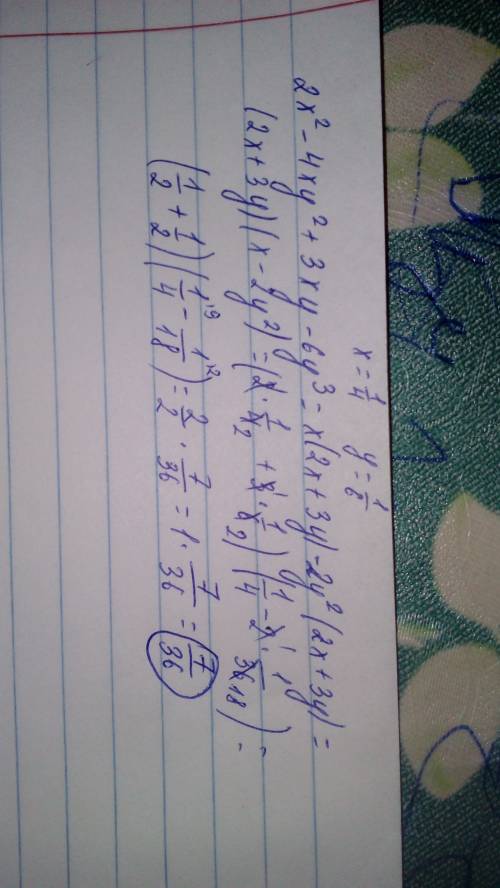 x = 1/4 y = 1/6
2x² - 4xy² + 3xy - 6y³ = x(2x + 3y) - 2y²(2x + 3y) =
(2x + 3y)(x - 2y²) = (2 · 1/4 2 + 3 1 · 1/6 2)(1/4 - 2 1 · 1/36 18) =
(1/2 + 1/2)(1/4 \9 - 1/18 \2) = 2/2 · 7/36 = 1 · 7/36 = 7/36